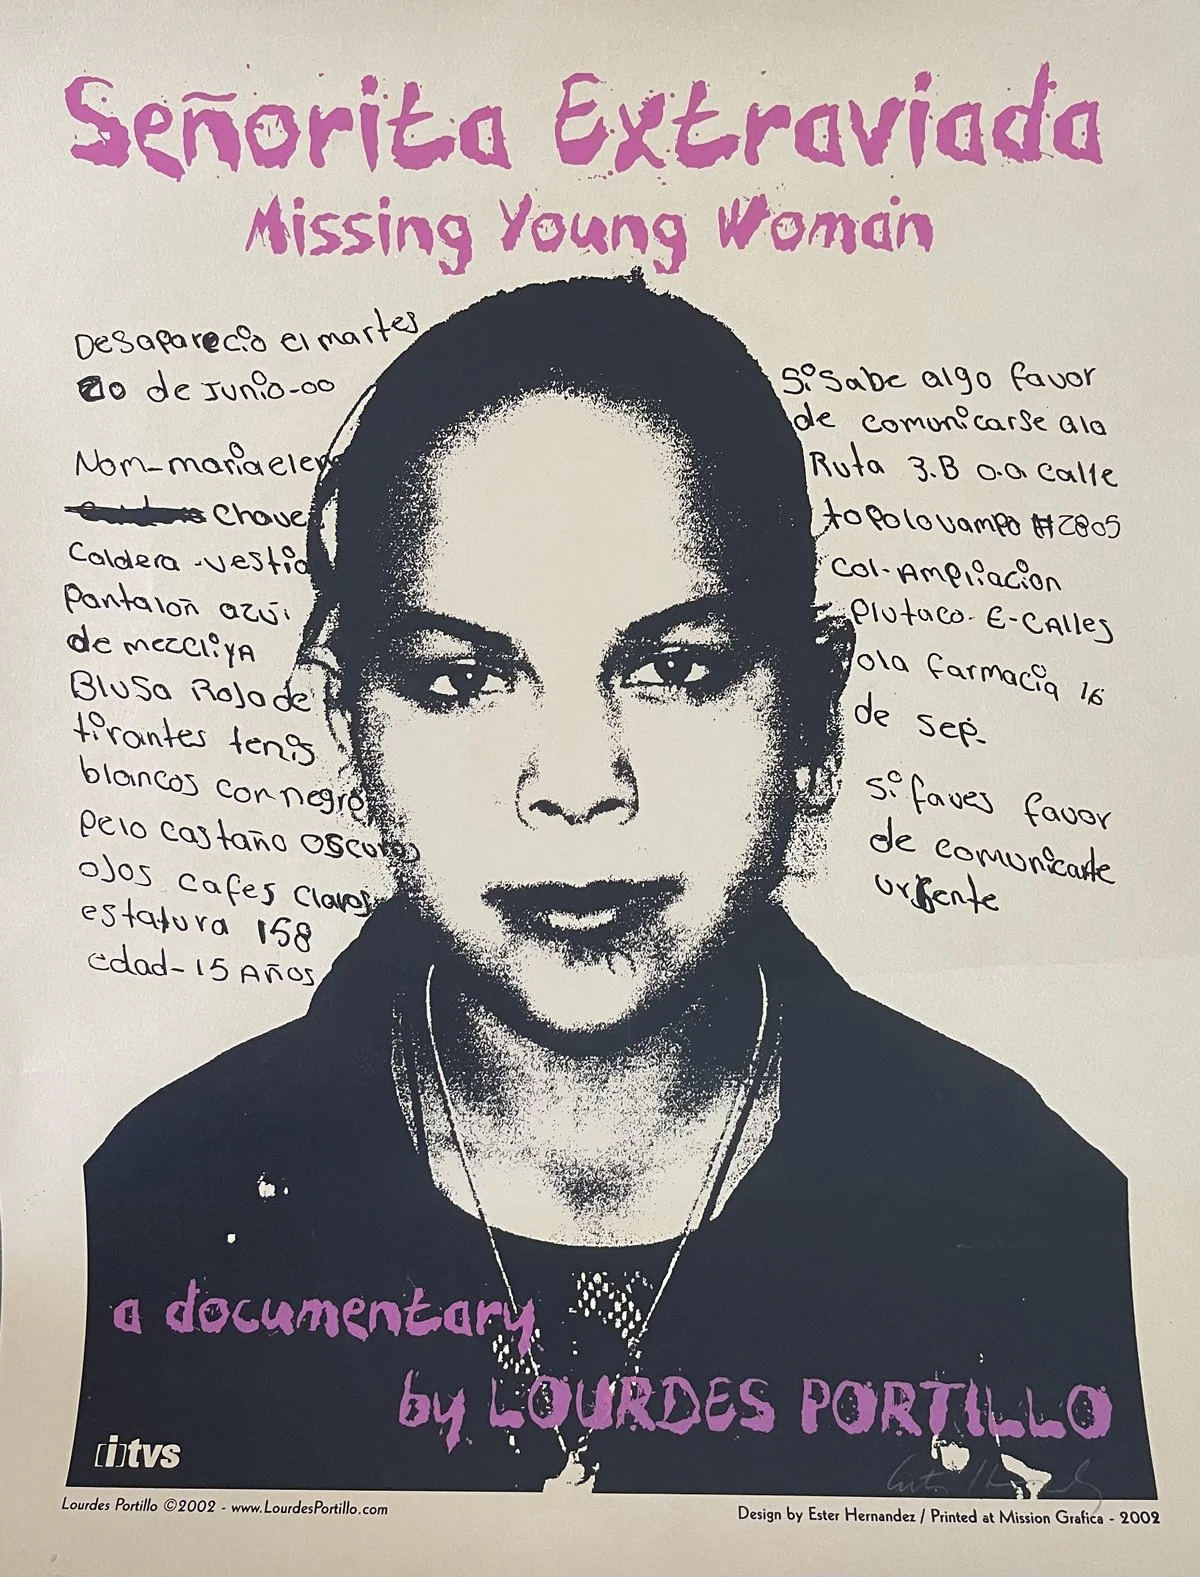 Señorita Extraviada
Missing Young Woman
Desaparecio el martes
20 de Junio-00
Nom-maria elen
Chave
Caldera -vestia
Pantaloñ azúl
de mezcliya
Blusa Roja de
tirantes tenis
blancos con negro
Pelo castaño oscuro
ojos cafes claros
estatura 158
edad-15 Años
Si Sabe algo favor
de comunicarse ala
Ruta 3.B o.a calle
topolovampo #2805
col-Ampliacion
Plutaco- E-CAlles
ola farmacia 16
de sep.
Si faves favor
de comunicarte
urgente
a documentary
by LOURDES PORTILLO
[i]tvs
Lourdes Portillo ©2002 - www.LourdesPortillo.com
Design by Ester Hernandez / Printed at Mission Grafica - 2002